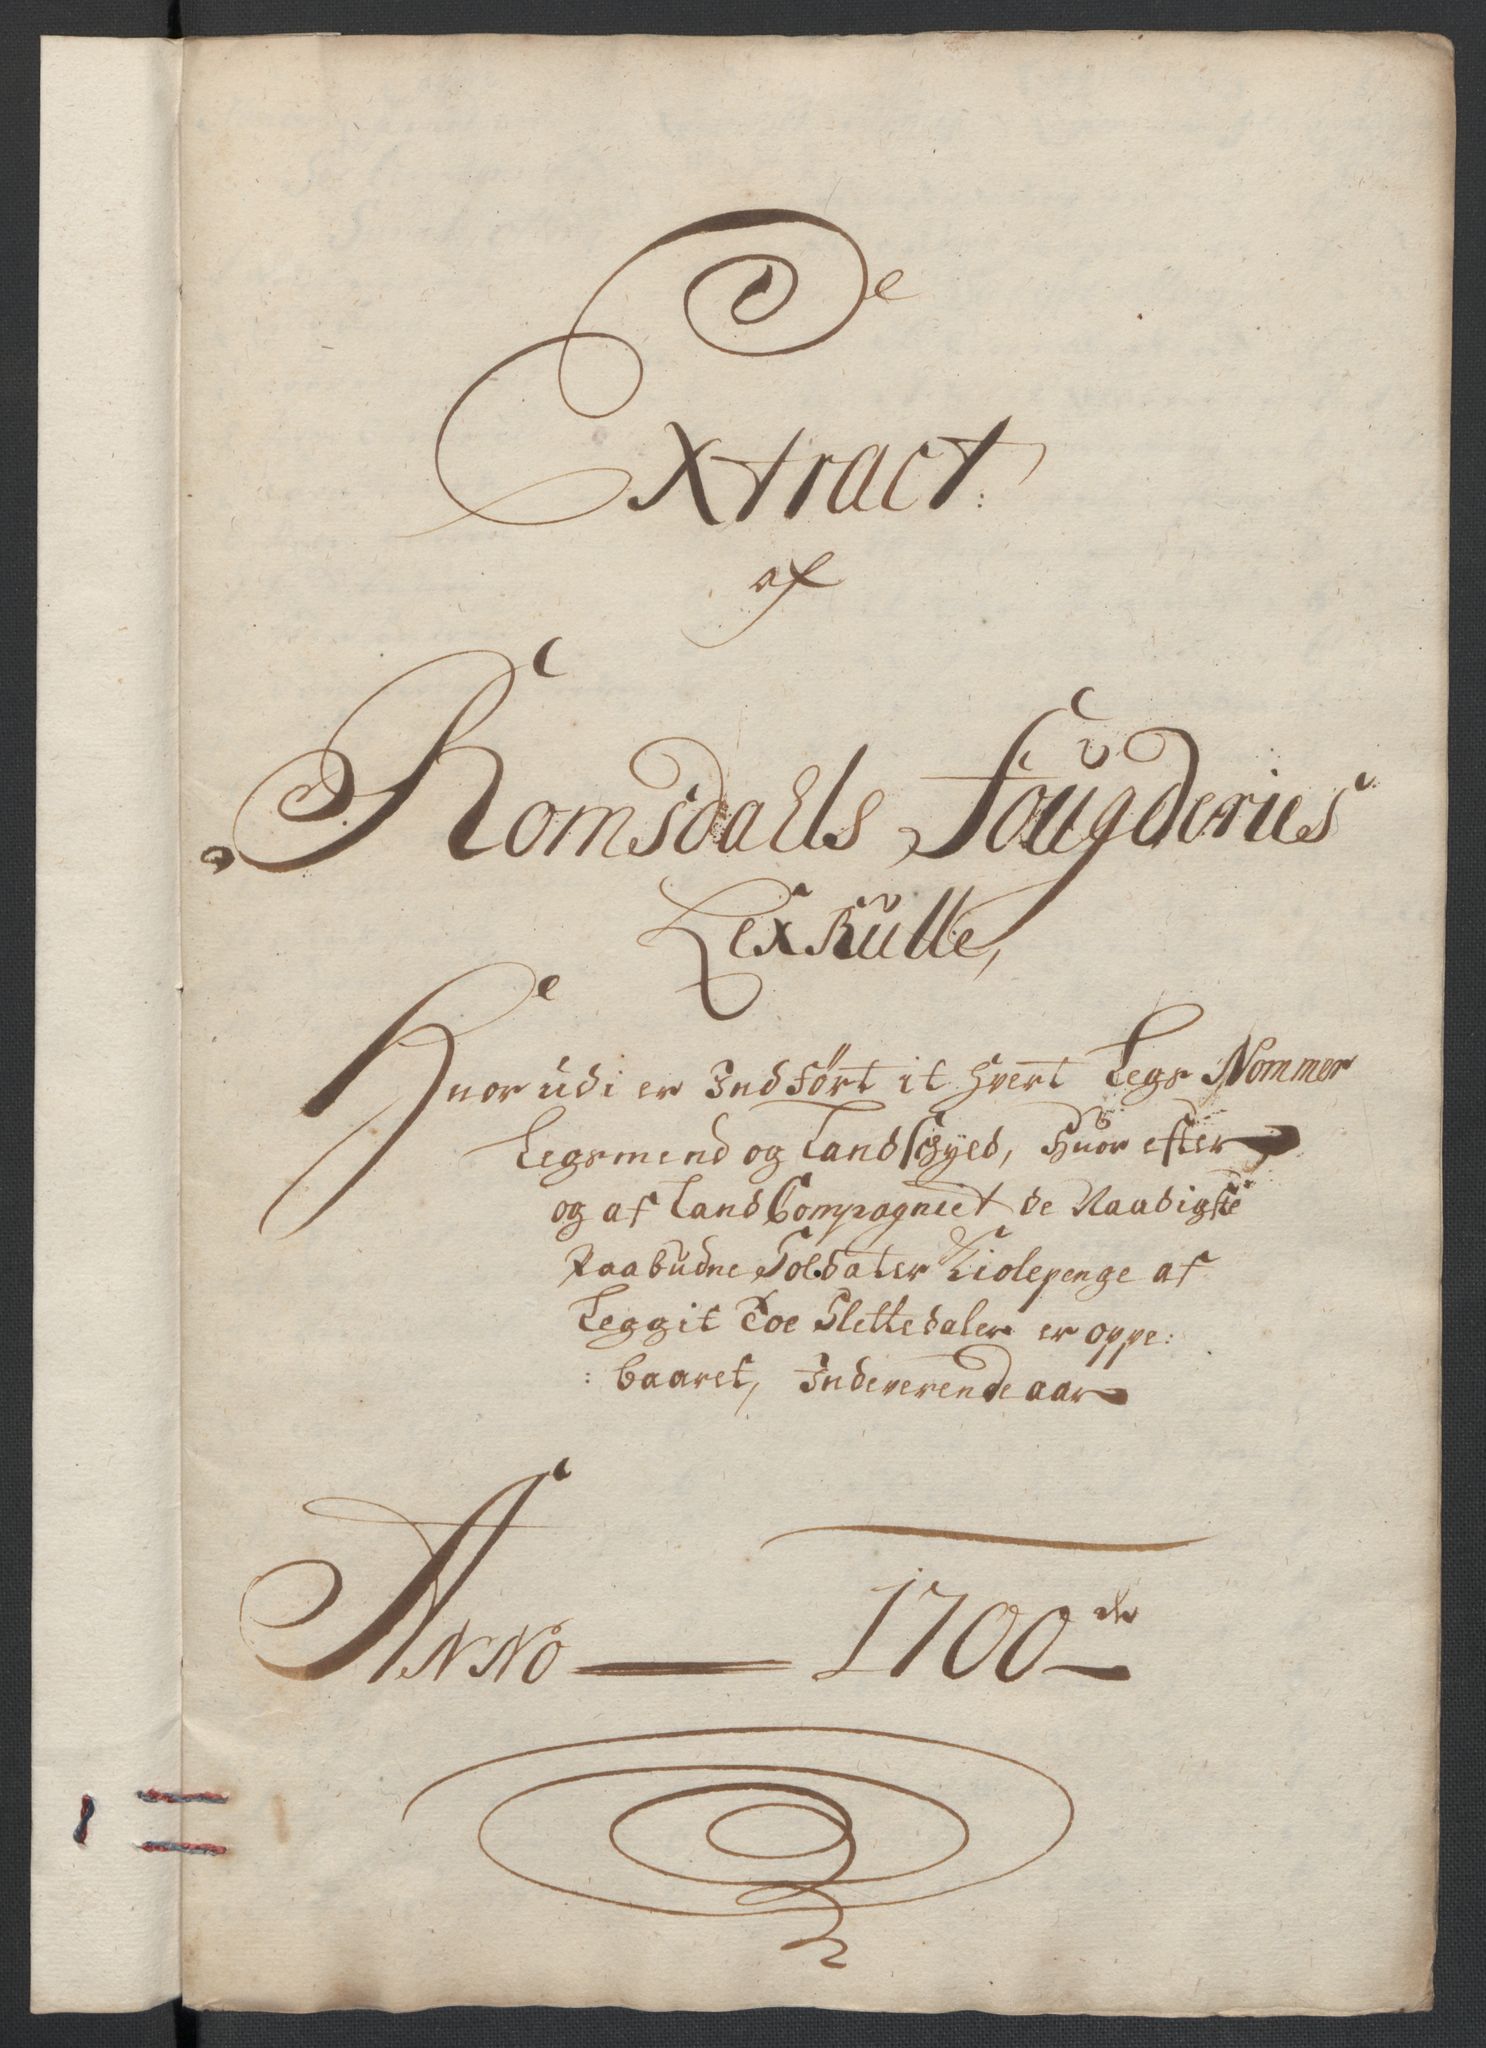 Extract:
af
Romsdahls Fougderies
LexRulle,
Huorudi er Indført it hvert Legs Nommer
Legsmend og Landschyld, Huor efter
og af LandCompagniet de Naadigste
Paabudne Soldater Kiolepenge af
Legget Toe Slettedaler er oppe:
:baaret, Indeverende aar
ANNo 1700de